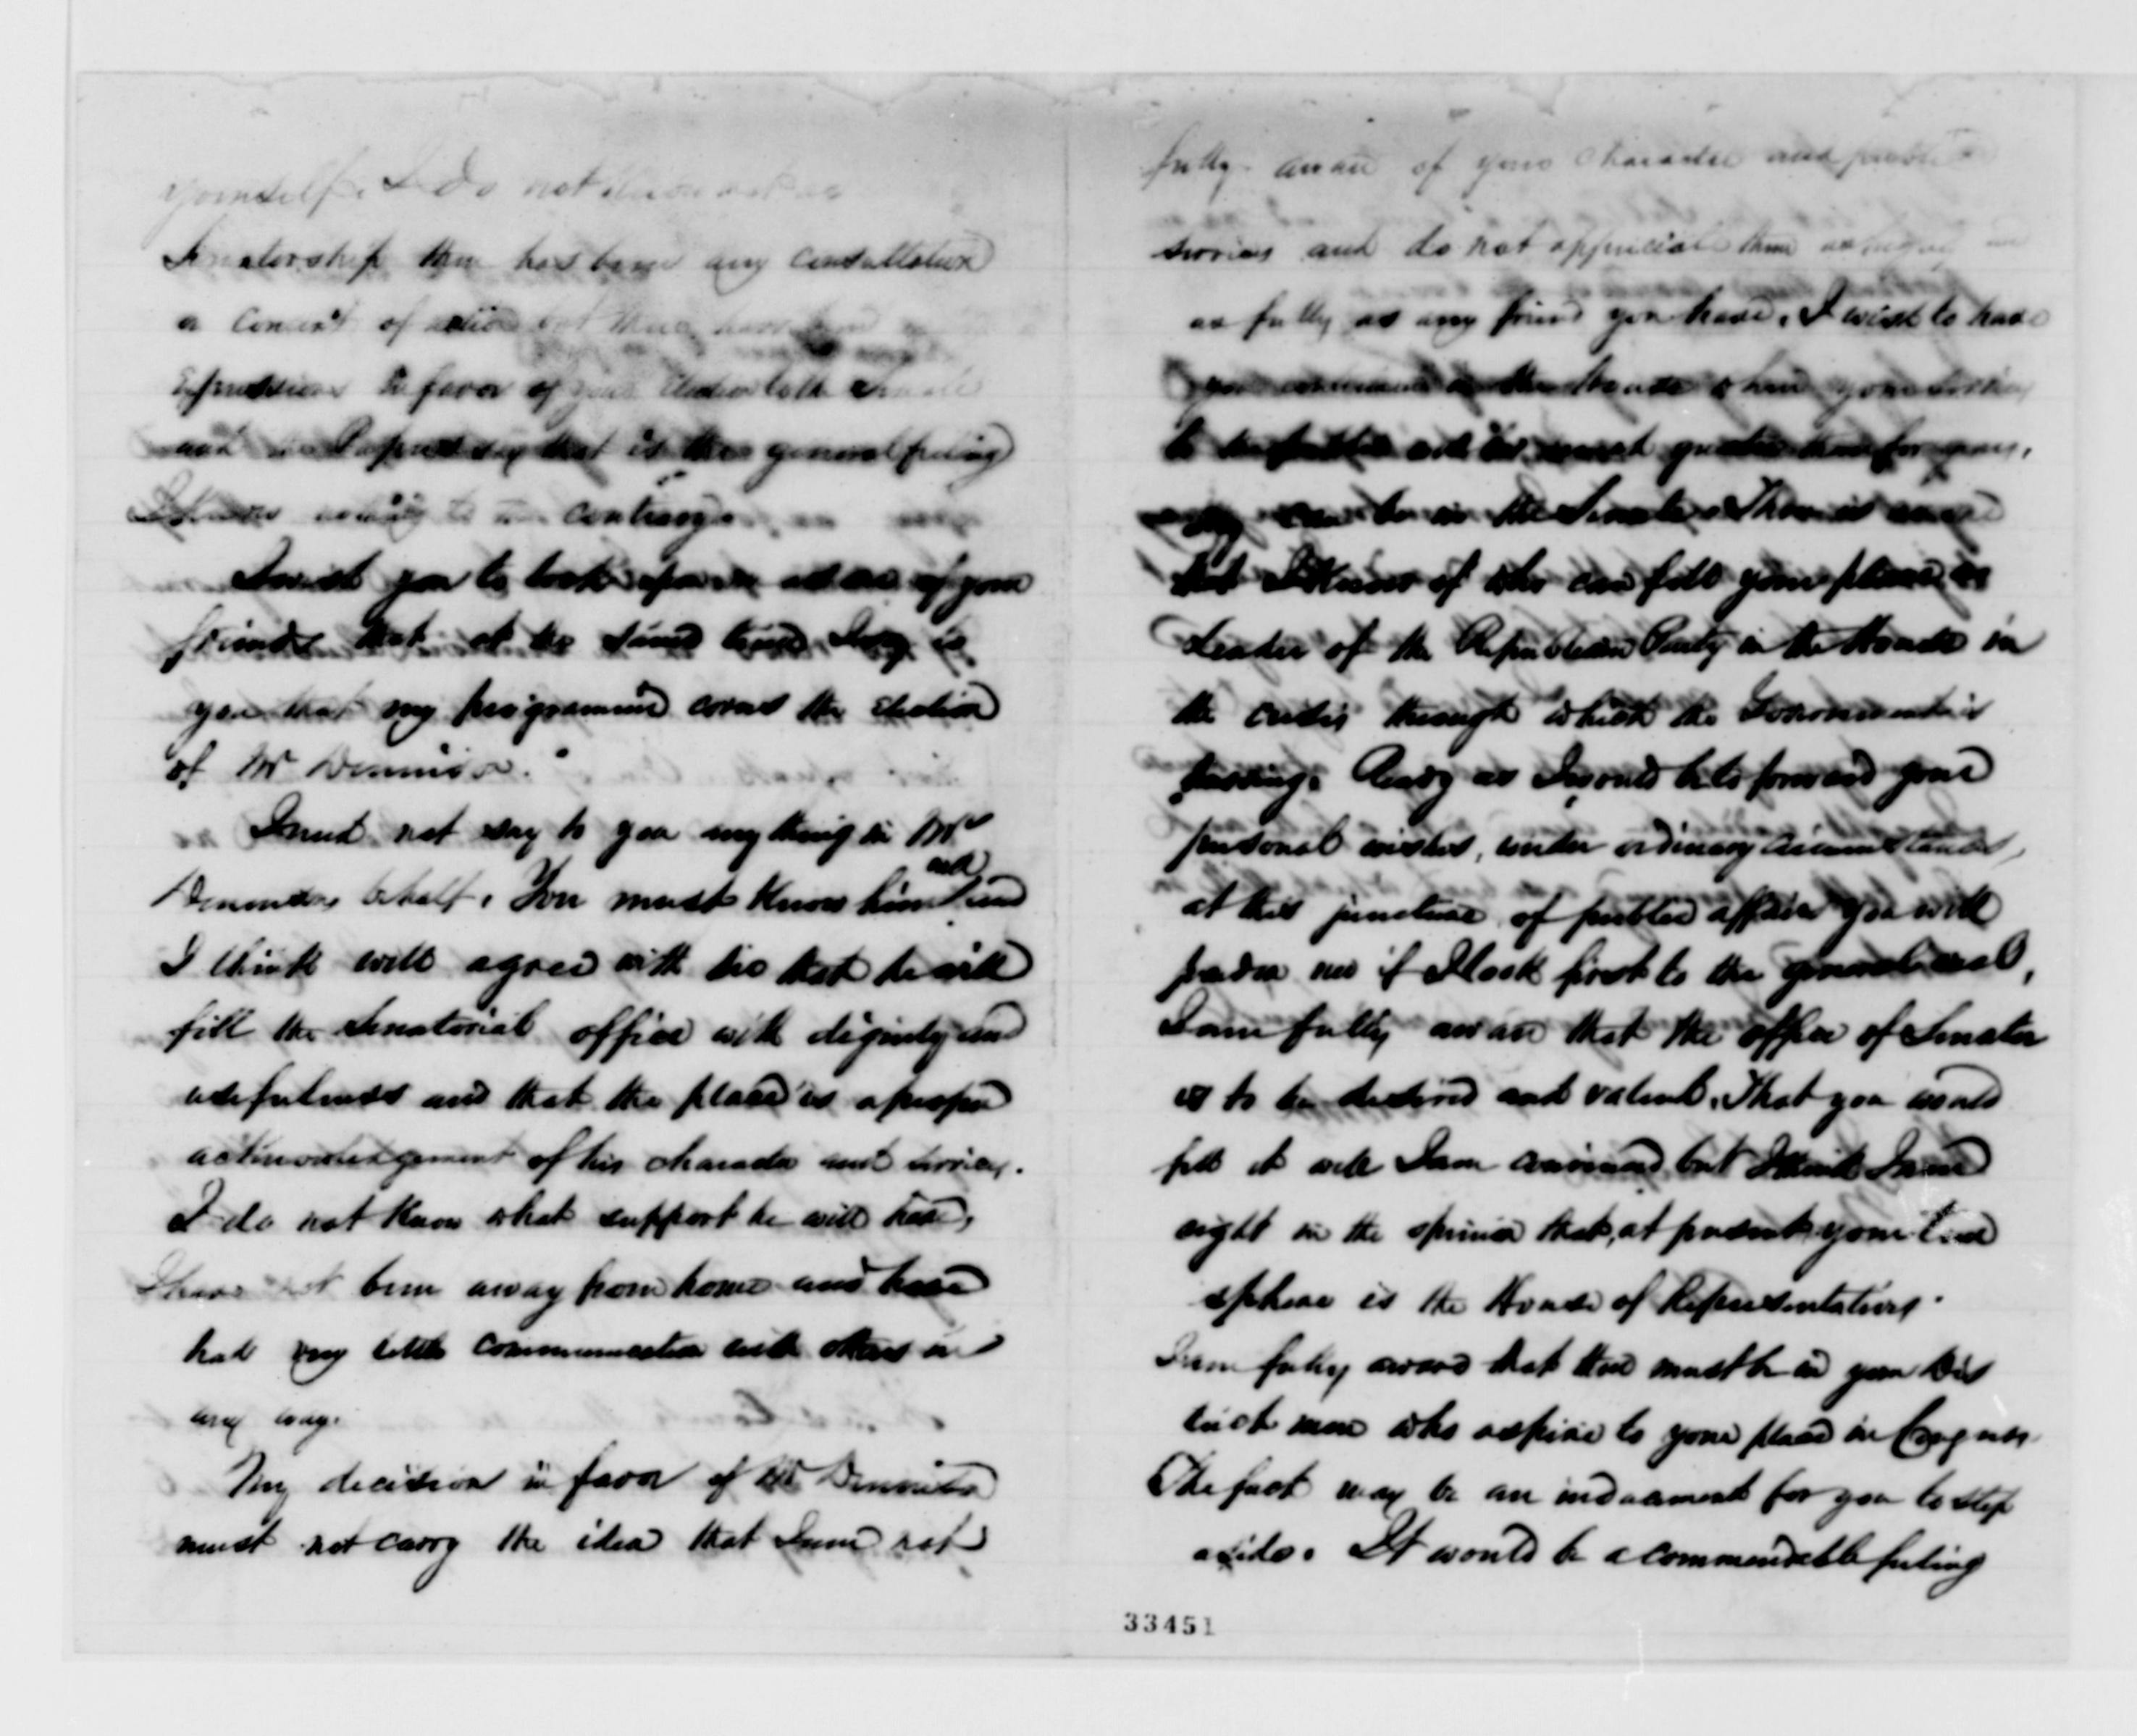 yourself. I do not
Senatorship there has been any consultation
a concert of action but there have been
Expressions in favor of your Election to the Senate
and the Papers say that is the general feeling
I know nothing to the contrary.
I wish you to look upon me as one of your
friends that at the same time I say to
you that my programme covers the election
of Mr Dennison.
I need not say to you anything in Mr
Dennisons behalf. You must know him and
I think will agree with me that he will
fill the Senatorial office with dignity and
usefulness and that the place is a proper
acknowledgement of his character and services.
I do not know what support he will have,
I have not been away from home and have
had very little communication with others in
any way.
My decision in favor of Mr Dennison
must not carry the idea that I am not
fully aware of your character and public
services and do not appreciate them
as fully as any friend you have. I wish to have
you continued in the House where your services
to the public will be much greater than for years,
they can be in the Senate. There is no one
that I know of who can fill your place as
Leader of the Republican Party in the House in
the crisis through which the Government is
passing. Ready as I would be to forward your
personal wishes, under ordinary circumstances,
at this juncture of public affairs you will
pardon me if I look first to the general weal,
I am fully aware that the office of Senator
is to be desired and valued. That you would
fill it well I am convinced but I think I am
right in the opinion that, at present, your true
sphere is the House of Representatives.
I am fully aware that there must be in your Dis
trict men who aspire to your place in Congress
The fact may be an inducement for you to step
aside. It would be a commendable feeling
33451